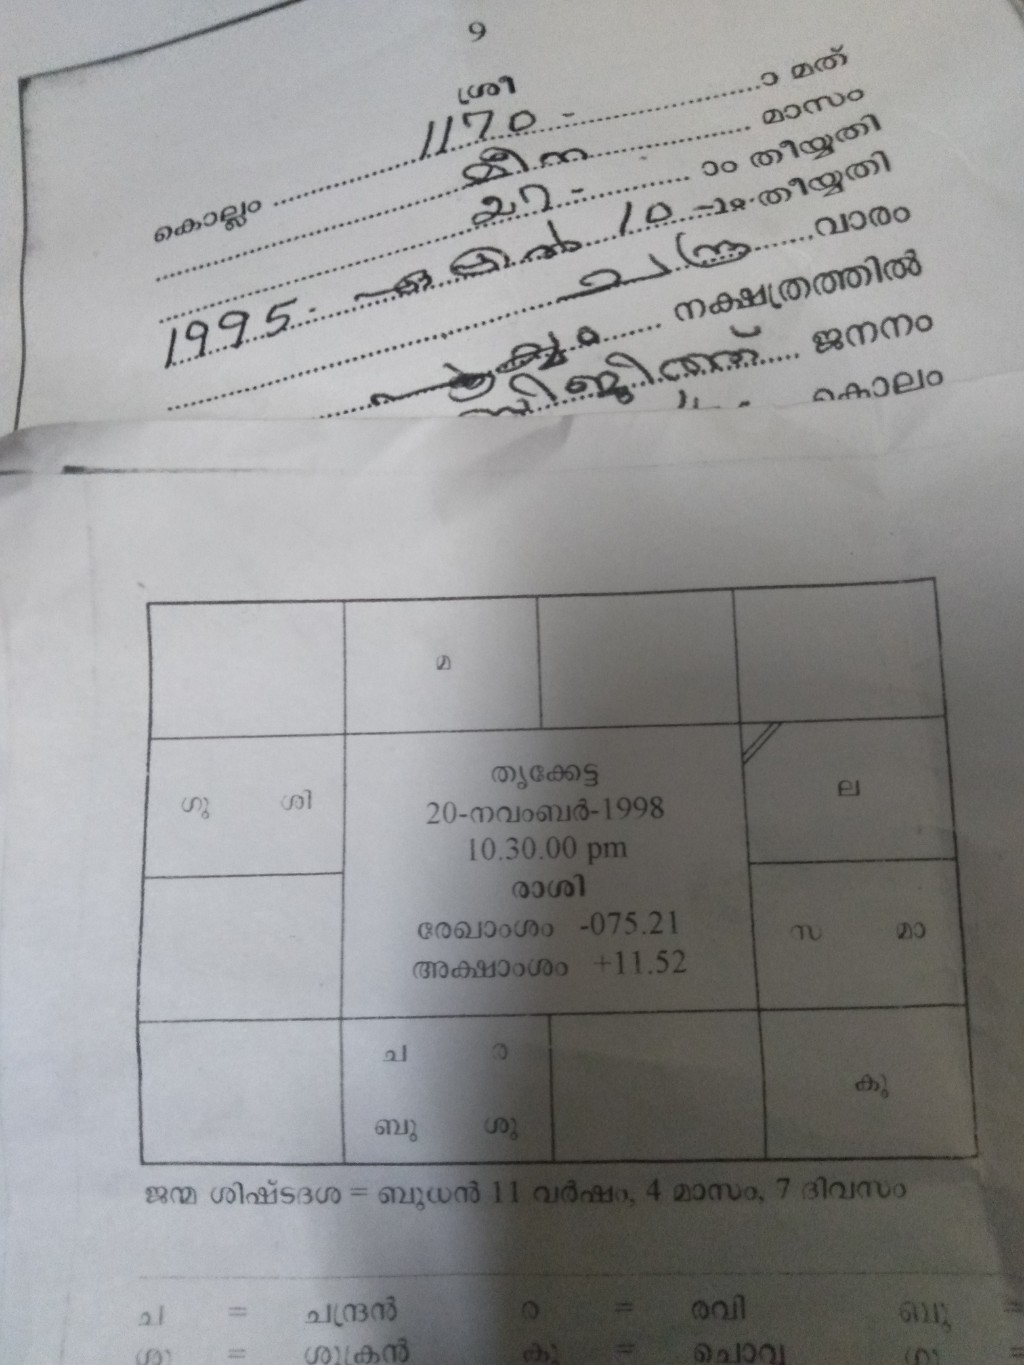 9
ശ്രീ
കൊല്ലം 1170 - ാ മത്
മീന മാസം
27 - ാം തീയ്യതി
1995 - ഏപ്രിൽ 10 -ാം തീയ്യതി
ചന്ദ്ര വാരം
നക്ഷത്രത്തിൽ
ജനനം
മ
ഗു ശി
തൃക്കേട്ട
20-നവംബർ-1998
10.30.00 pm
രാശി
രേഖാംശം -075.21
അക്ഷാംശം +11.52
ല
സ മാ
ച ര
ബു ശു
കു
ജന്മ ശിഷ്ടദശ = ബുധൻ 11 വർഷം, 4 മാസം, 7 ദിവസം
ച = ചന്ദ്രൻ ര = രവി ബു =
ശു = ശുക്രൻ കു = ചൊവ്വ ഗു =